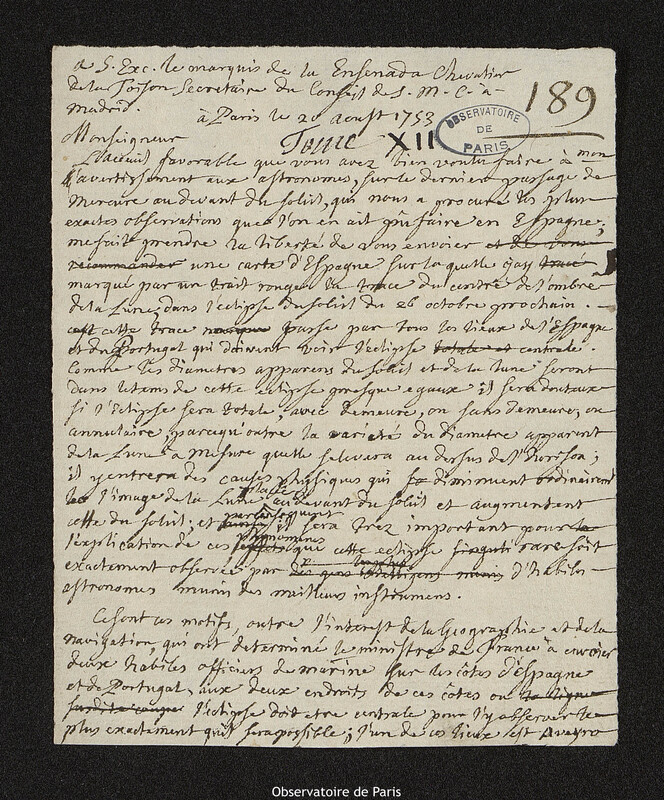 a S. Exc. le marquis de la Ensenada Chevalier
de la Toison Secretaire du Conseil de S. M. C. à
madrid.
189
à Paris le 20 aoust 1753
OBSERVATOIRE
DE
PARIS
Monseigneur
Tome XII
L'accueil favorable que vous avez bien voulu faire à mon
avertissement aux astronomes, sur le dernier passage de
Mercure au devant du soleil, qui nous a procuré les plus
exactes observations que l'on en ait pû faire en Espagne;
me fait prendre la liberté de vous envoier et de vous
recommander une carte d'Espagne sur laquelle j'ay tracé
marqué par un trait rouge la trace du centre de l'ombre
de la Lune, dans l'eclipse du soleil du 26 octobre prochain.
cette trace marque passe par tous les lieux de l'Espagne
et du Portugal qui doivent voir l'eclipse totale et centrale.
Comme les diametres apparens du soleil et de la lune seront
dans le tems de cette eclipse presque egaux il sera douteux
si l'eclipse sera totale, avec demeure, ou sans demeure, ou
annulaire; parcequ'outre la varieté du diametre apparent
de la Lune à mesure quelle s'elevera au dessus de l'horison;
il y entrera des causes physiques qui diminuent ordinairement
l'image de la Lune placée au devant du soleil et augmentent
celle du soleil; et par consequent il sera trez important pour
l'explication de ces effets phenomenes que cette eclipse rare soit
exactement observée par des gens intelligens munis d'habiles
astronomes munis des meilleurs instrumens.
Ce sont ces motifs, outre l'interest de la Geographie et de la
navigation, qui ont determiné le ministre de France à envoier
deux habiles officiers de marine sur les côtes d'Espagne
et de Portugal, aux deux endroits de ces côtes ou la ligne
susdite coupe l'eclipse doit etre centrale pour l'y observer le
plus exactement qu'il sera possible; l'un de ces lieux est Aveyro
Observatoire de Paris